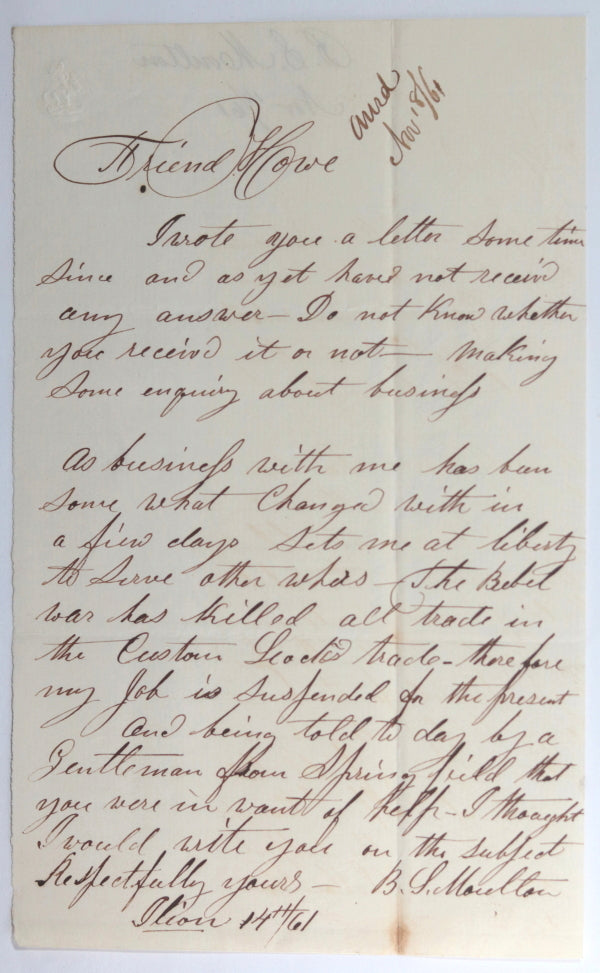 ansd
Nov 8/61
Friend Howe
I wrote you a letter some time
since and as yet haved not receivd
any answer — Do not know whether
you receivd it or not — making
some enquiry about business
As business with me has been
some what Changed with in
a fiew days sets me at liberty
to serve other whois — The Rebel
war has killed all trade in
the Custom trade — therefore
my Job is suspended for the present
and being told to day by a
Gentleman from Springfield that
you were in want of help — I thought
I would write you on the subject
Respectfully yours — B. S. Moulton
Ilion 14th/61